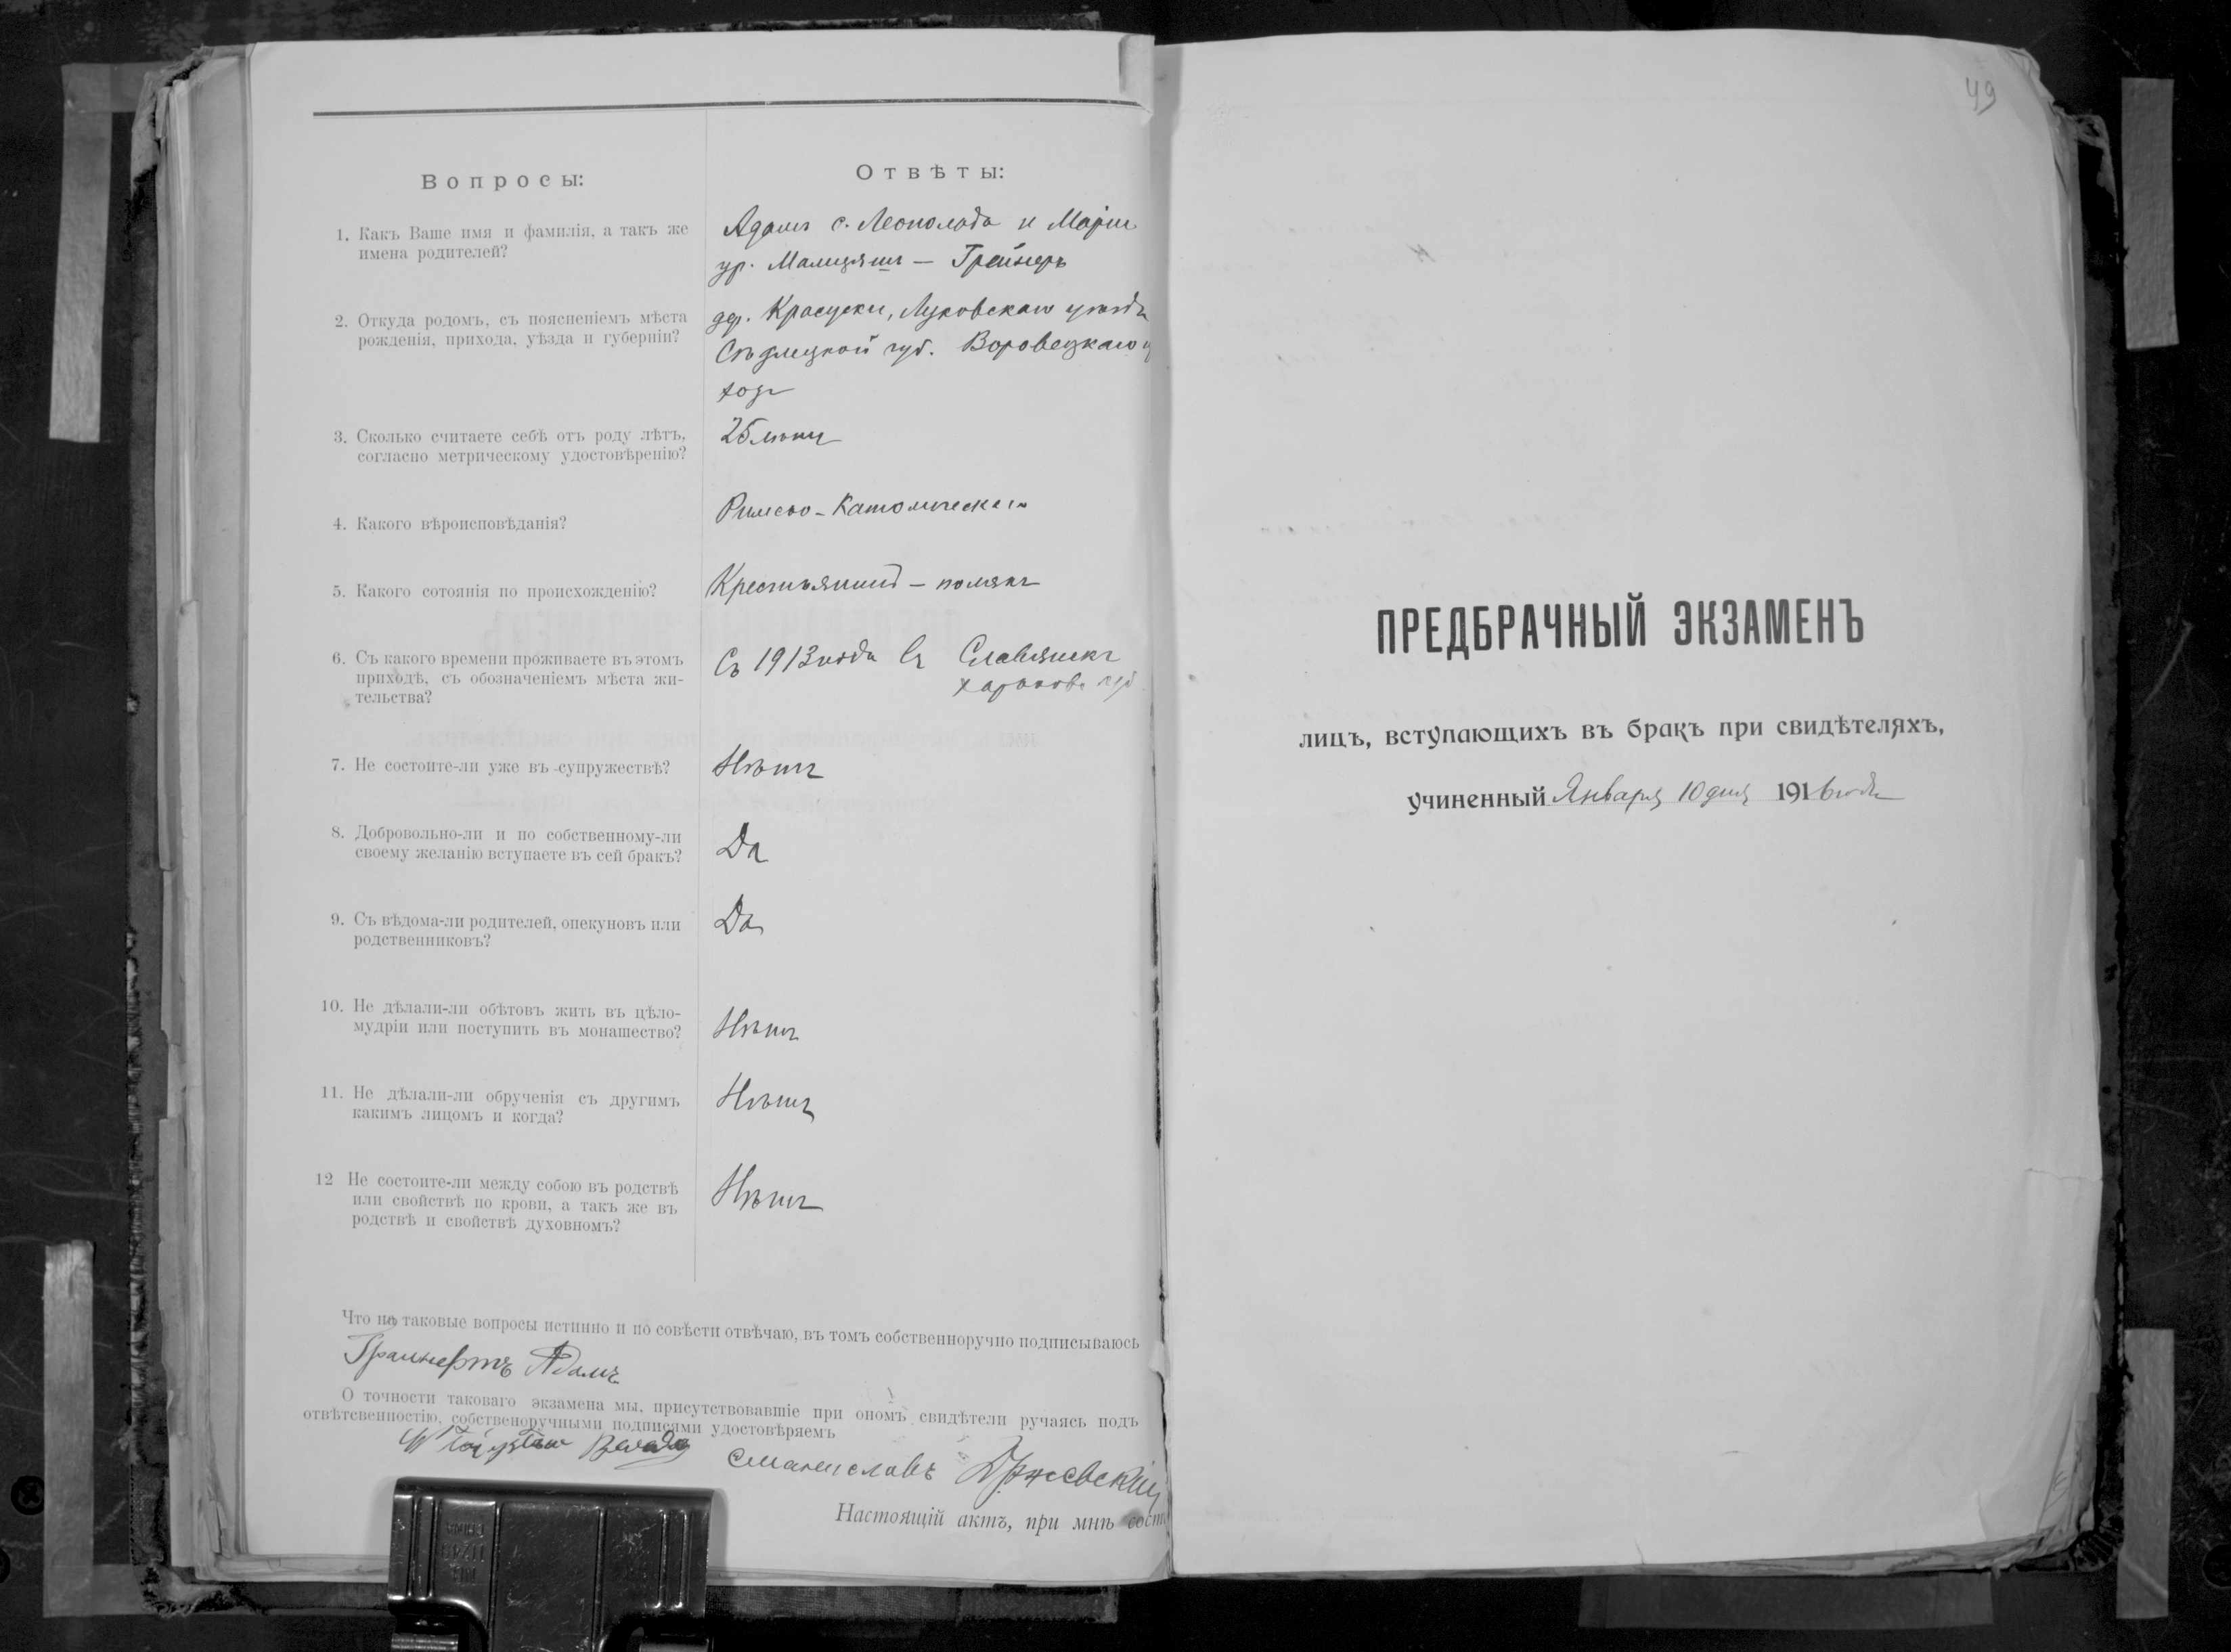 Вопросы:
Отвѣты:
1. Какъ Ваше имя и фамилія, а такъ же
имена родителей?
Адамъ с. Леопольда и Маріи
ур. — Грейнеръ
2. Откуда родомъ, съ поясненіемъ мѣста
рожденія, прихода, уѣзда и губерніи?
дер. Красуски, Луковскаго уѣзда
Сѣдлецкой губ.
3. Сколько считаете себѣ отъ роду лѣтъ,
согласно метрическому удостовѣренію?
25 лѣтъ
4. Какого вѣроисповѣданія?
Римско-Католическаго
5. Какого сотоянія по происхожденію?
Крестьянинъ — полякъ
6. Съ какого времени проживаете въ этомъ
приходѣ, съ обозначеніемъ мѣста жи-
тельства?
Съ 1913 года въ Славянскѣ
Харьков. губ.
7. Не состоите-ли уже въ супружествѣ?
Нѣтъ
8. Добровольно-ли и по собственному-ли
своему желанію вступаете въ сей бракъ?
Да
9. Съ вѣдома-ли родителей, опекуновъ или
родственниковъ?
Да
10. Не дѣлали-ли обѣтовъ жить въ цѣло-
мудріи или поступить въ монашество?
Нѣтъ
11. Не дѣлали-ли обрученія съ другимъ
какимъ лицомъ и когда?
Нѣтъ
12 Не состоите-ли между собою въ родствѣ
или свойствѣ по крови, а такъ же въ
родствѣ и свойствѣ духовномъ?
Нѣтъ
Что на таковые вопросы истинно и по совѣсти отвѣчаю, въ томъ собственноручно подписываюсь
Адамъ
О точности таковаго экзамена мы, присутствовавшіе при ономъ свидѣтели ручаясь подъ
отвѣтсвенностію, собственоручными подписями удостовѣряемъ
Станиславъ
Настоящій актъ, при мнѣ сост
49
ПРЕДБРАЧНЫЙ ЭКЗАМЕНЪ
лицъ, вступающихъ въ бракъ при свидѣтеляхъ,
учиненный Января 10 дня 1916 года